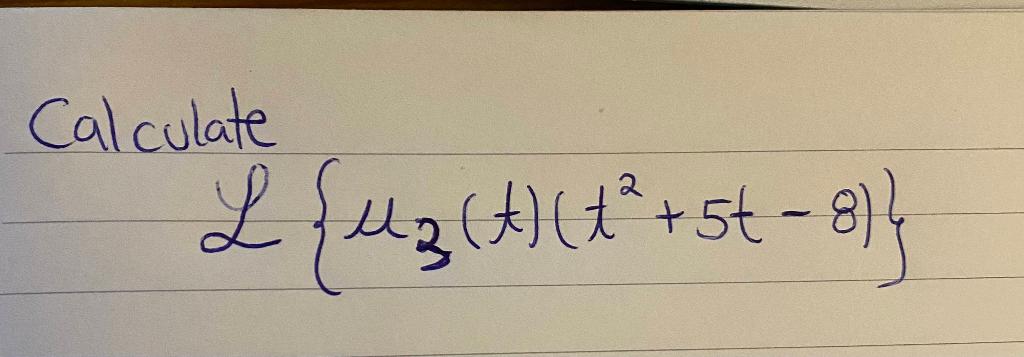 Calculate
ℒ{u₃(t)(t²+5t-8)}